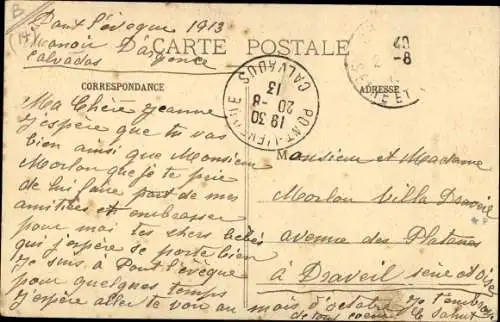 B
(14)
Pont l'évêque 1913
manoir D'argence
Calvados
CARTE POSTALE
CORRESPONDANCE
ADRESSE
PONT-L'EVÊQUE
CALVADOS
19 30
20-8
13
40
-8
SEINE ET
Ma Chère Jeanne
J'espère que tu vas
bien ainsi que Monsieur
Morlon que je te prie
de lui faire part de mes
amitiées et embrasser
pour moi tes chers bébés
qui j'espère se porte bien
Je suis à Pont l'évêque
pour quelques temps
J'espère aller te voir au mois d'octobre je t'embrasse
de tout coeur
Monsieur et Madame
Morlon Villa Draveil
avenue des Platanes
à Draveil seine et oise